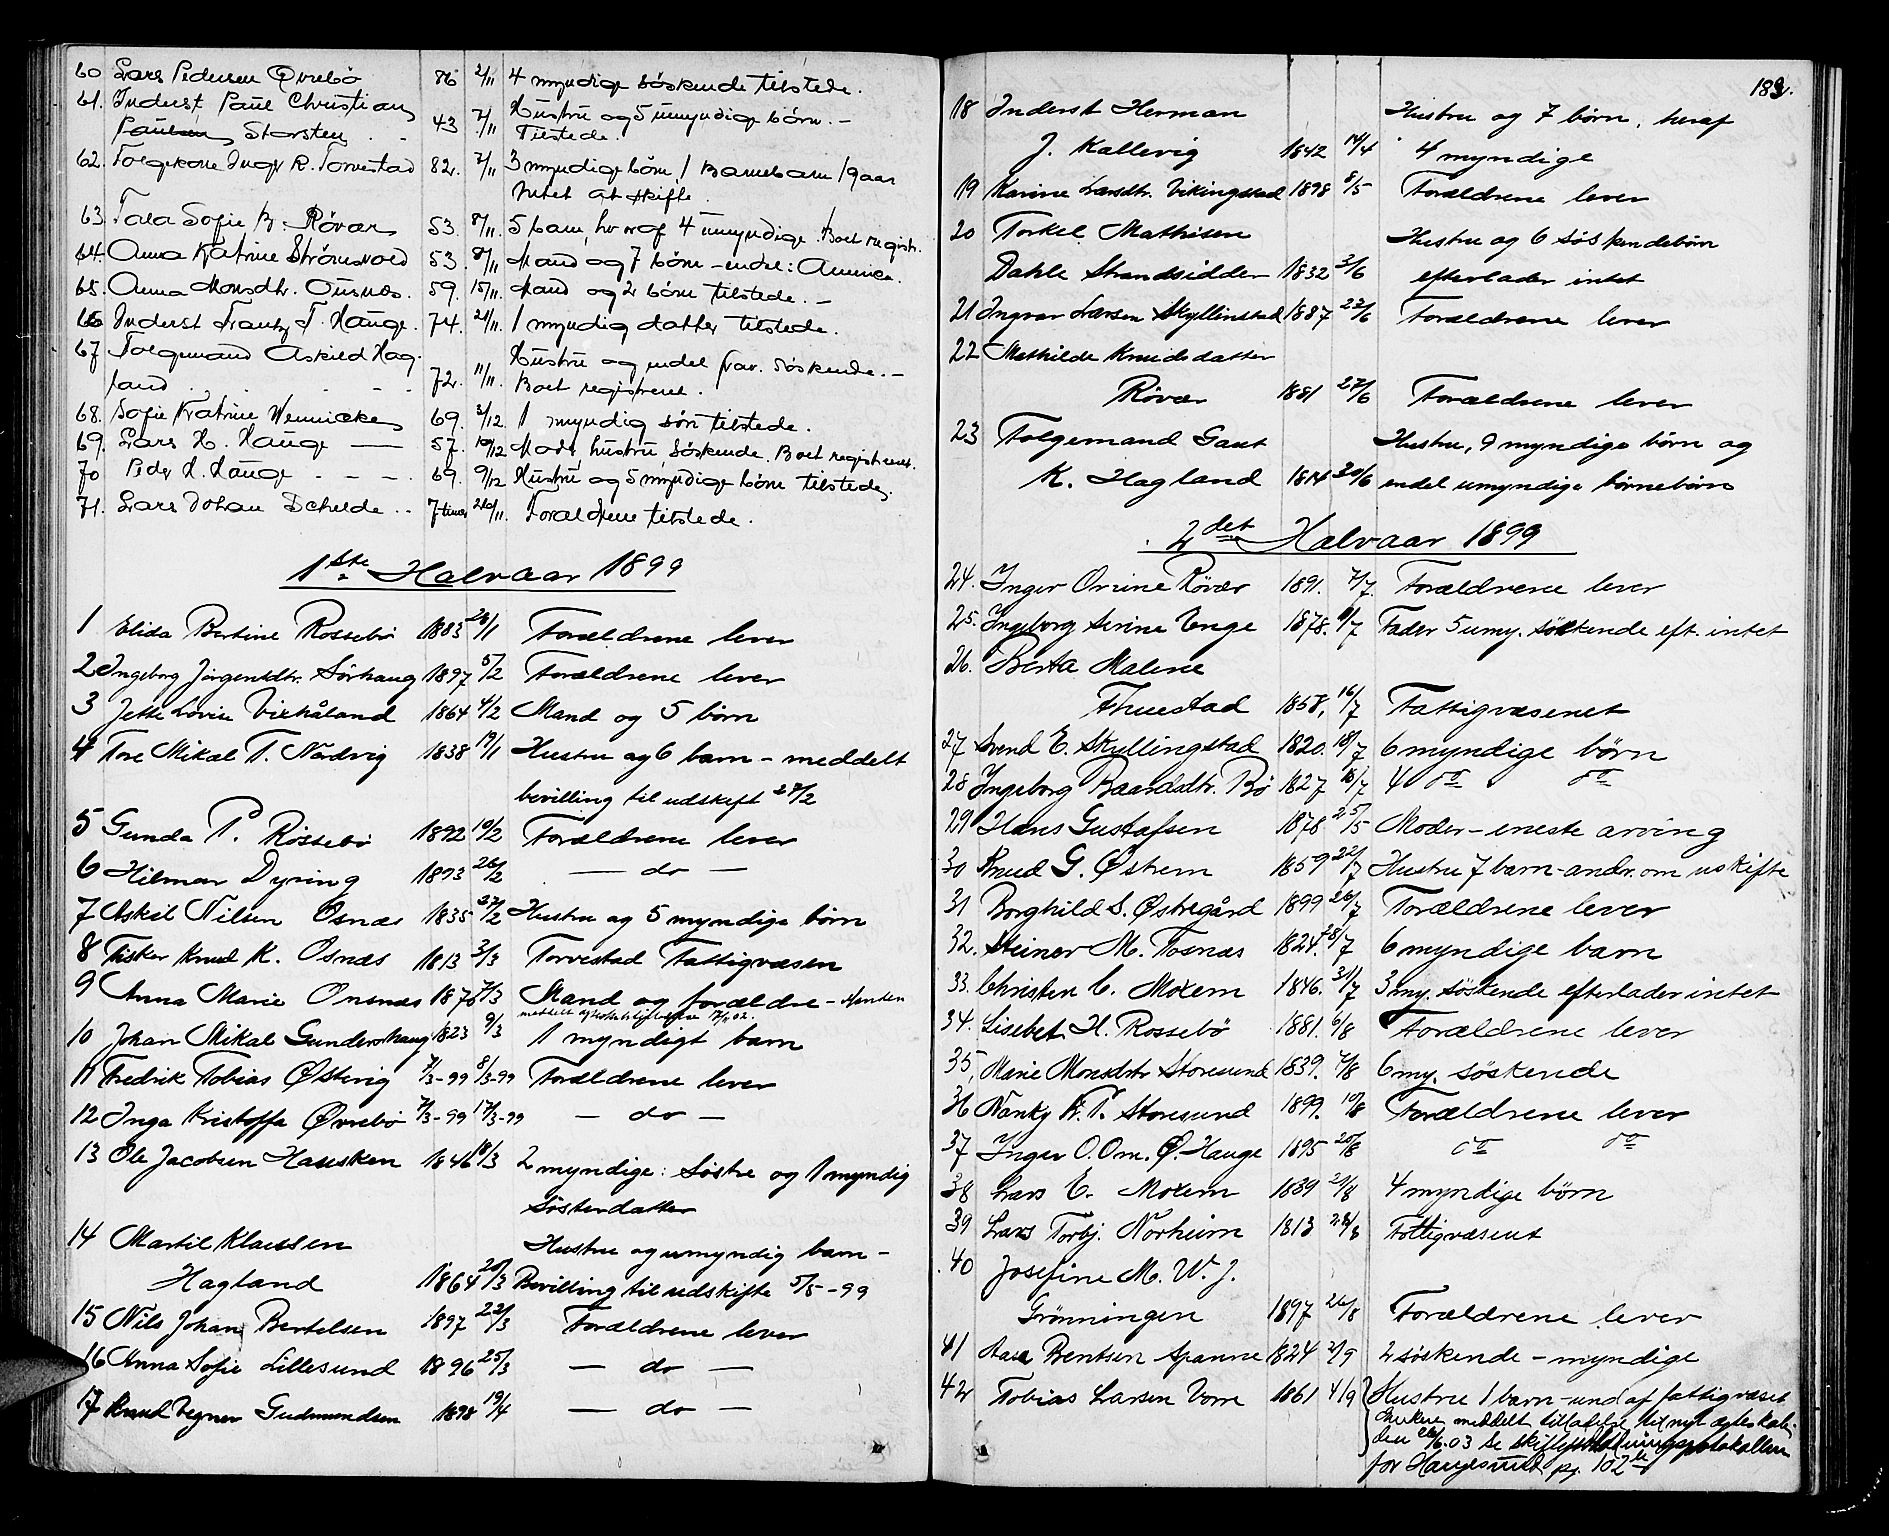 60 Lars Pedersen Øvrebö 86 2/11 4 myndige söskende tilstede.
61. Inderst Paul Christian
Paulsen Storsten . . 43 7/11 Hustru og 5 umyndige börn. — Tilstede.
62. Folgekone Inger R. Torvestad 82. 7/11 3 myndige börn 1 Barnebarn
intet at skifte.
63. Tala Sofie B. Rövær 53. 8/11 5 barn, hvoraf 4 umyndige. Boet registr.
64. Anna Katrine Strömsvold 53. 8/11 Mand og 7 börn – endel: Amerika.
65. Anna Monsdtr. Ousnes. 59. 15/11. Mand og 2 börn tilstede. —
66 Inderst Frantz T. Hauge. 74. 21/11. 1 myndig datter tilstede.
67 Folgemand Askild Hag-
land . . . . 72. 11/11. Hustru og endel frav. söskende. — Boet registreret.
68. Sofie Katrine Wennicke 69. 3/12. 1 myndig sön tilstede.
69. Lars H. Hauge — 57. 10/12 Moder, hustru, söskende. Boet registreret.
70 Bdr H. Hauge . . . . 69. 9/12 Hustru og 5 myndige börn tilstede.
71. Lars Johan Schelde . . 7 timer 20/11. Forældrene tilstede.
1ste Halvaar 1899
1 Elida Bertine Rossebö 1883 26/1 Forældrene lever
2 Ingeborg Jörgensdtr. Sörhaug 1897 5/2 Forældrene lever
3 Jette Lovise Vikåland 1864 4/2 Mand og 5 börn
4 Tore Mikal T. Nordvig 1838 19/1 Hustru og 6 barn – meddelt
bevilling til udskift 27/2
5 Gunda P. Røssebö 1892 10/2 Forældrene lever
6 Hilmar Dyring 1893 26/2 — do —
7 Askil Nilsen Osnæs 1835 27/2 Hustru og 5 myndige börn
8 Fisker Knud K. Osnæs 1813 2/3 Torvestad Fattigvæsen
9 Anna Marie Onsnæs 1876 7/3 Mand og forældre – Manden
10 Johan Mikal Gundershaug 1823 9/3 1 myndigt barn
11 Fredrik Tobias Østvig 7/3-99 8/3-99 Forældrene lever
12 Inga Kristoffa Øvrebö 7/3-99 17/3-99 — do —
13 Ole Jacobsen Hausken 1846 18/3 2 myndige: Söstre og 1 myndig
Sösterdatter
14 Martil Klausen Hustru og umyndig barn –
Hagland 1864 20/3 Bevilling til udskifte 5/5 -99
15 Nils Johan Bertelsen 1897 22/3 Forældrene lever
16 Anna Sofie Lillesund 1896 25/3 — do —
17 Knud Vegner Gudmundsen 1898 19/4 — do —
183.
18 Inderst Herman Hustru og 7 börn, heraf
J. Kallevig 1842 14/4 4 myndige
19 Karine Larsdtr. Vikingstad 1898 8/5 Forældrene lever
20 Torkel Mathisen Hustru og 6 söskendebörn
Dahle Strandsidder 1832 3/6 efterlader intet
21 Ingvar Larsen Skyllinstad 1887 23/6 Forældrene lever
22 Mathilde Knudsdatter
Rövær 1881 27/6 Forældrene lever
23 Folgemand Gaut Hustru, 9 myndige börn og
K. Hagland 1814 30/6 endel umyndige börnebörn
2det Halvaar 1899
24. Inger Orine Rövær 1891. 7/7. Forældrene lever
25. Ingeborg Serine Enge 1878. 11/7 Fader 5 umy. söskende eft. intet
26. Berta Malene
Thuestad 1858, 16/7 Fattigvæsenet
27 Svend E. Skyllingstad 1820. 18/7 6 myndige börn
28 Ingeborg Baardsdtr. Bö 1827 18/7 4 do do
29 Hans Gustafsen 1878 25/5 Moder – eneste arving
30 Knud G. Østrem 1859 22/7 Hustru 7 barn – andr. om uskifte
31 Borghild S. Østregård 1899 26/7 Forældrene lever
32. Steinar M. Fosnæs 1824. 28/7 6 myndige barn
33. Christen C. Moxem 1846. 31/7 3 my. söskende efterlader intet
34. Lisebet H. Rossebö 1881. 6/8 Forældrene lever
35, Marie Monsdtr Storesund 1839. 7/8 6 my. söskende
36 Nanky K. T. Storesund 1899. 10/8 Forældrene lever
37 Inger O. Om. Ø. Hauge 1895 25/8 do do
38 Lars E. Moxem 1839 21/8 4 myndige börn
39 Lars Torbj. Norheim 1813 28/8 Fattigvæsent
40 Josefine M. W. J.
Grönningen 1897 26/8 Forældrene lever
41 Aasa Bentsen Spanne 1824 2/9 2 söskende – myndige
42 Tobias Larsen Vorre 1861 4/9 Hustru 1 barn – und. af fattigvæset
Enken meddelt tilladelse til nyt ægteskab
den 26/6.03 se skifteforhandlingsprotokollen
for Haugesund pg. 102